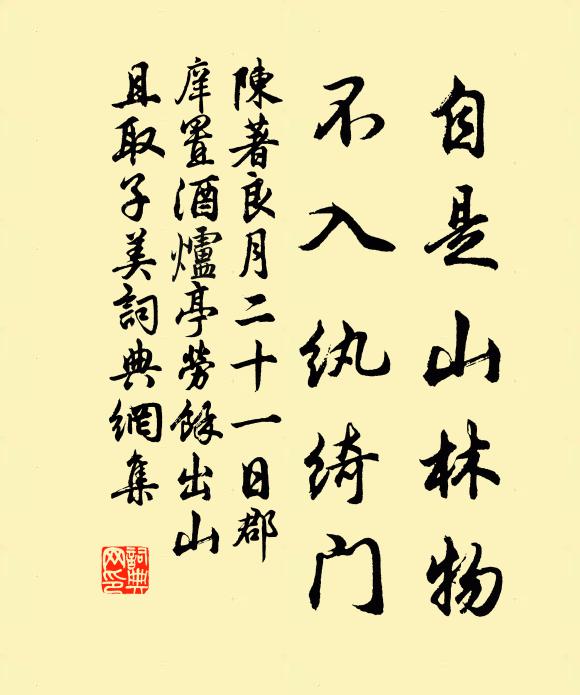 自是山林物
不入纨绮门
陳著良月二十一日郡
庠置酒爐亭勞餘出山
且取子美詞典網集
詞典網印